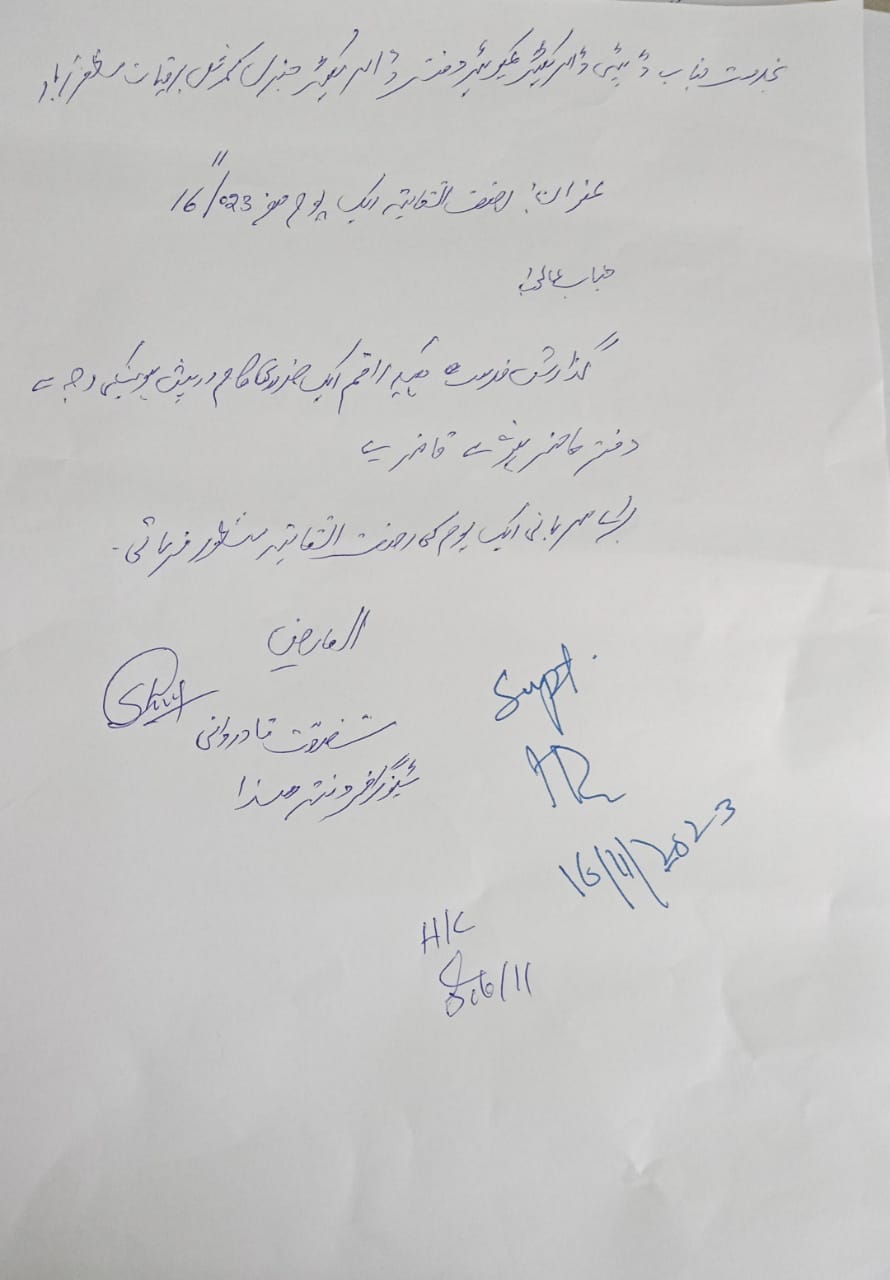 بخدمت جناب ڈپٹی ڈائریکٹر کمپیوٹر دفتر ڈائریکٹر جنرل کمرشل برقیات مظفرآباد
عنوان: رخصت اتفاقیہ ایک یوم مورخہ 16/11/023
جناب عالی!
گذارش خدمت ہیکہ راقم ایک ضروری کام درپیش ہونیکی وجہ سے
دفتر حاضر ہونے سے قاصر ہے
برائے مہربانی ایک یوم کی رخصت اتفاقیہ منظور فرمائی۔
العارض
قادروانی
سٹینوگرافر دفتر ھذا
Supt.
16/11/2023
H/C
16/11